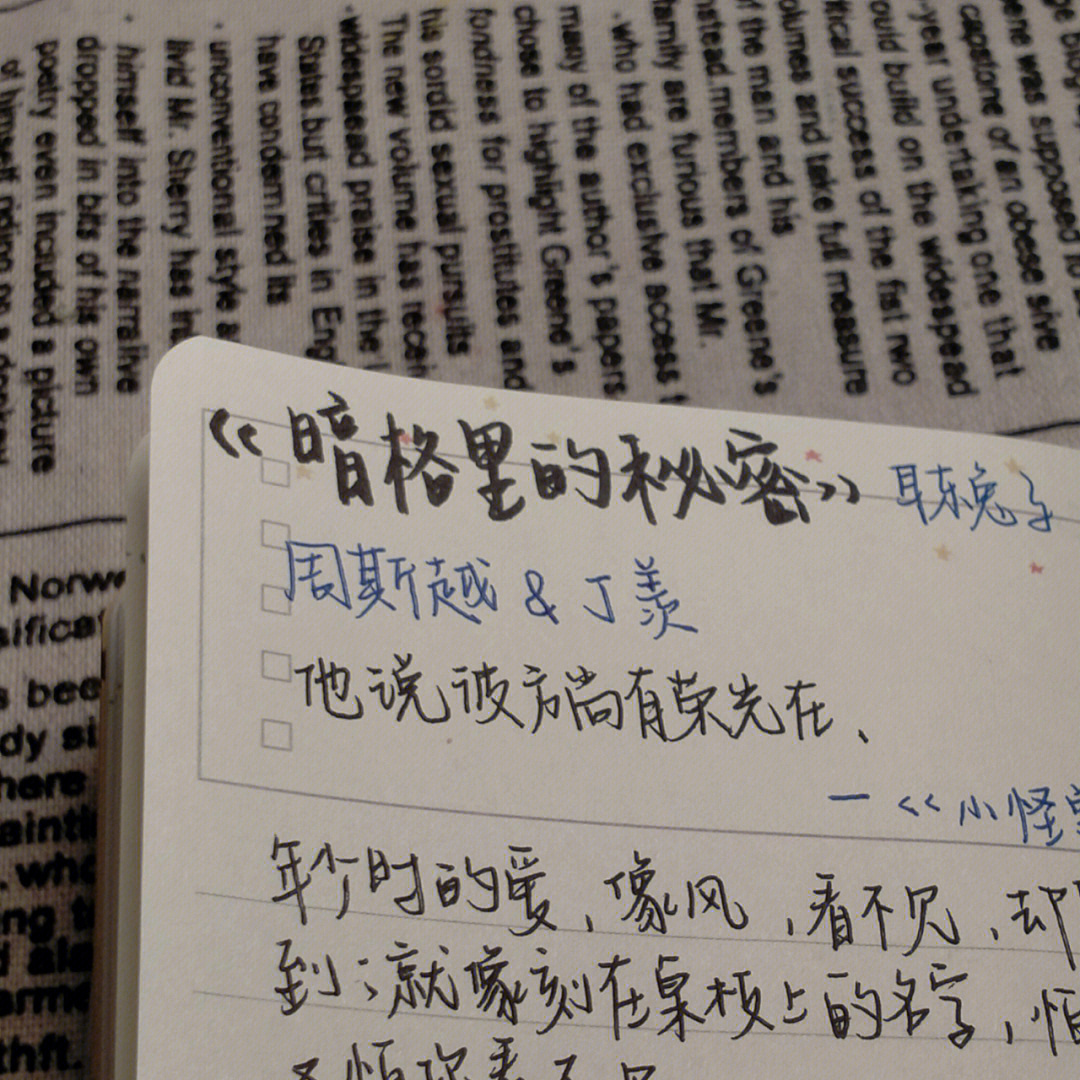 ene was supposed to
capstone of an obese sive
-year undertaking one that
ould build on the widespead
itical success of the fist two
olumes and take full measure
f the man and his
nstead,members of Greene's
family are furious that Mr.
·who had exclusive access t
many of the author's papers
chose to highlight Greene's
fondness for prostitutes and
his sordid sexual pursuits
The new volume has recei
·widespead praise in the
States,but crities in Eng
have condemned its
·unconventional style a
livid Mr. Sherry has in
·himself into the narralive
dropped in bits of his own
poetry even incuded a picture
《暗格里的秘密》 耳东兔子
周斯越 & 丁羡
他说彼方尚有荣光在、
一《小怪兽
年少时的爱、像风、看不见、却
到;就像刻在桌板上的名字,怕
Norw
sifica
s bee
dy si
here
aint
who
ng t
d ale
arme
thft.